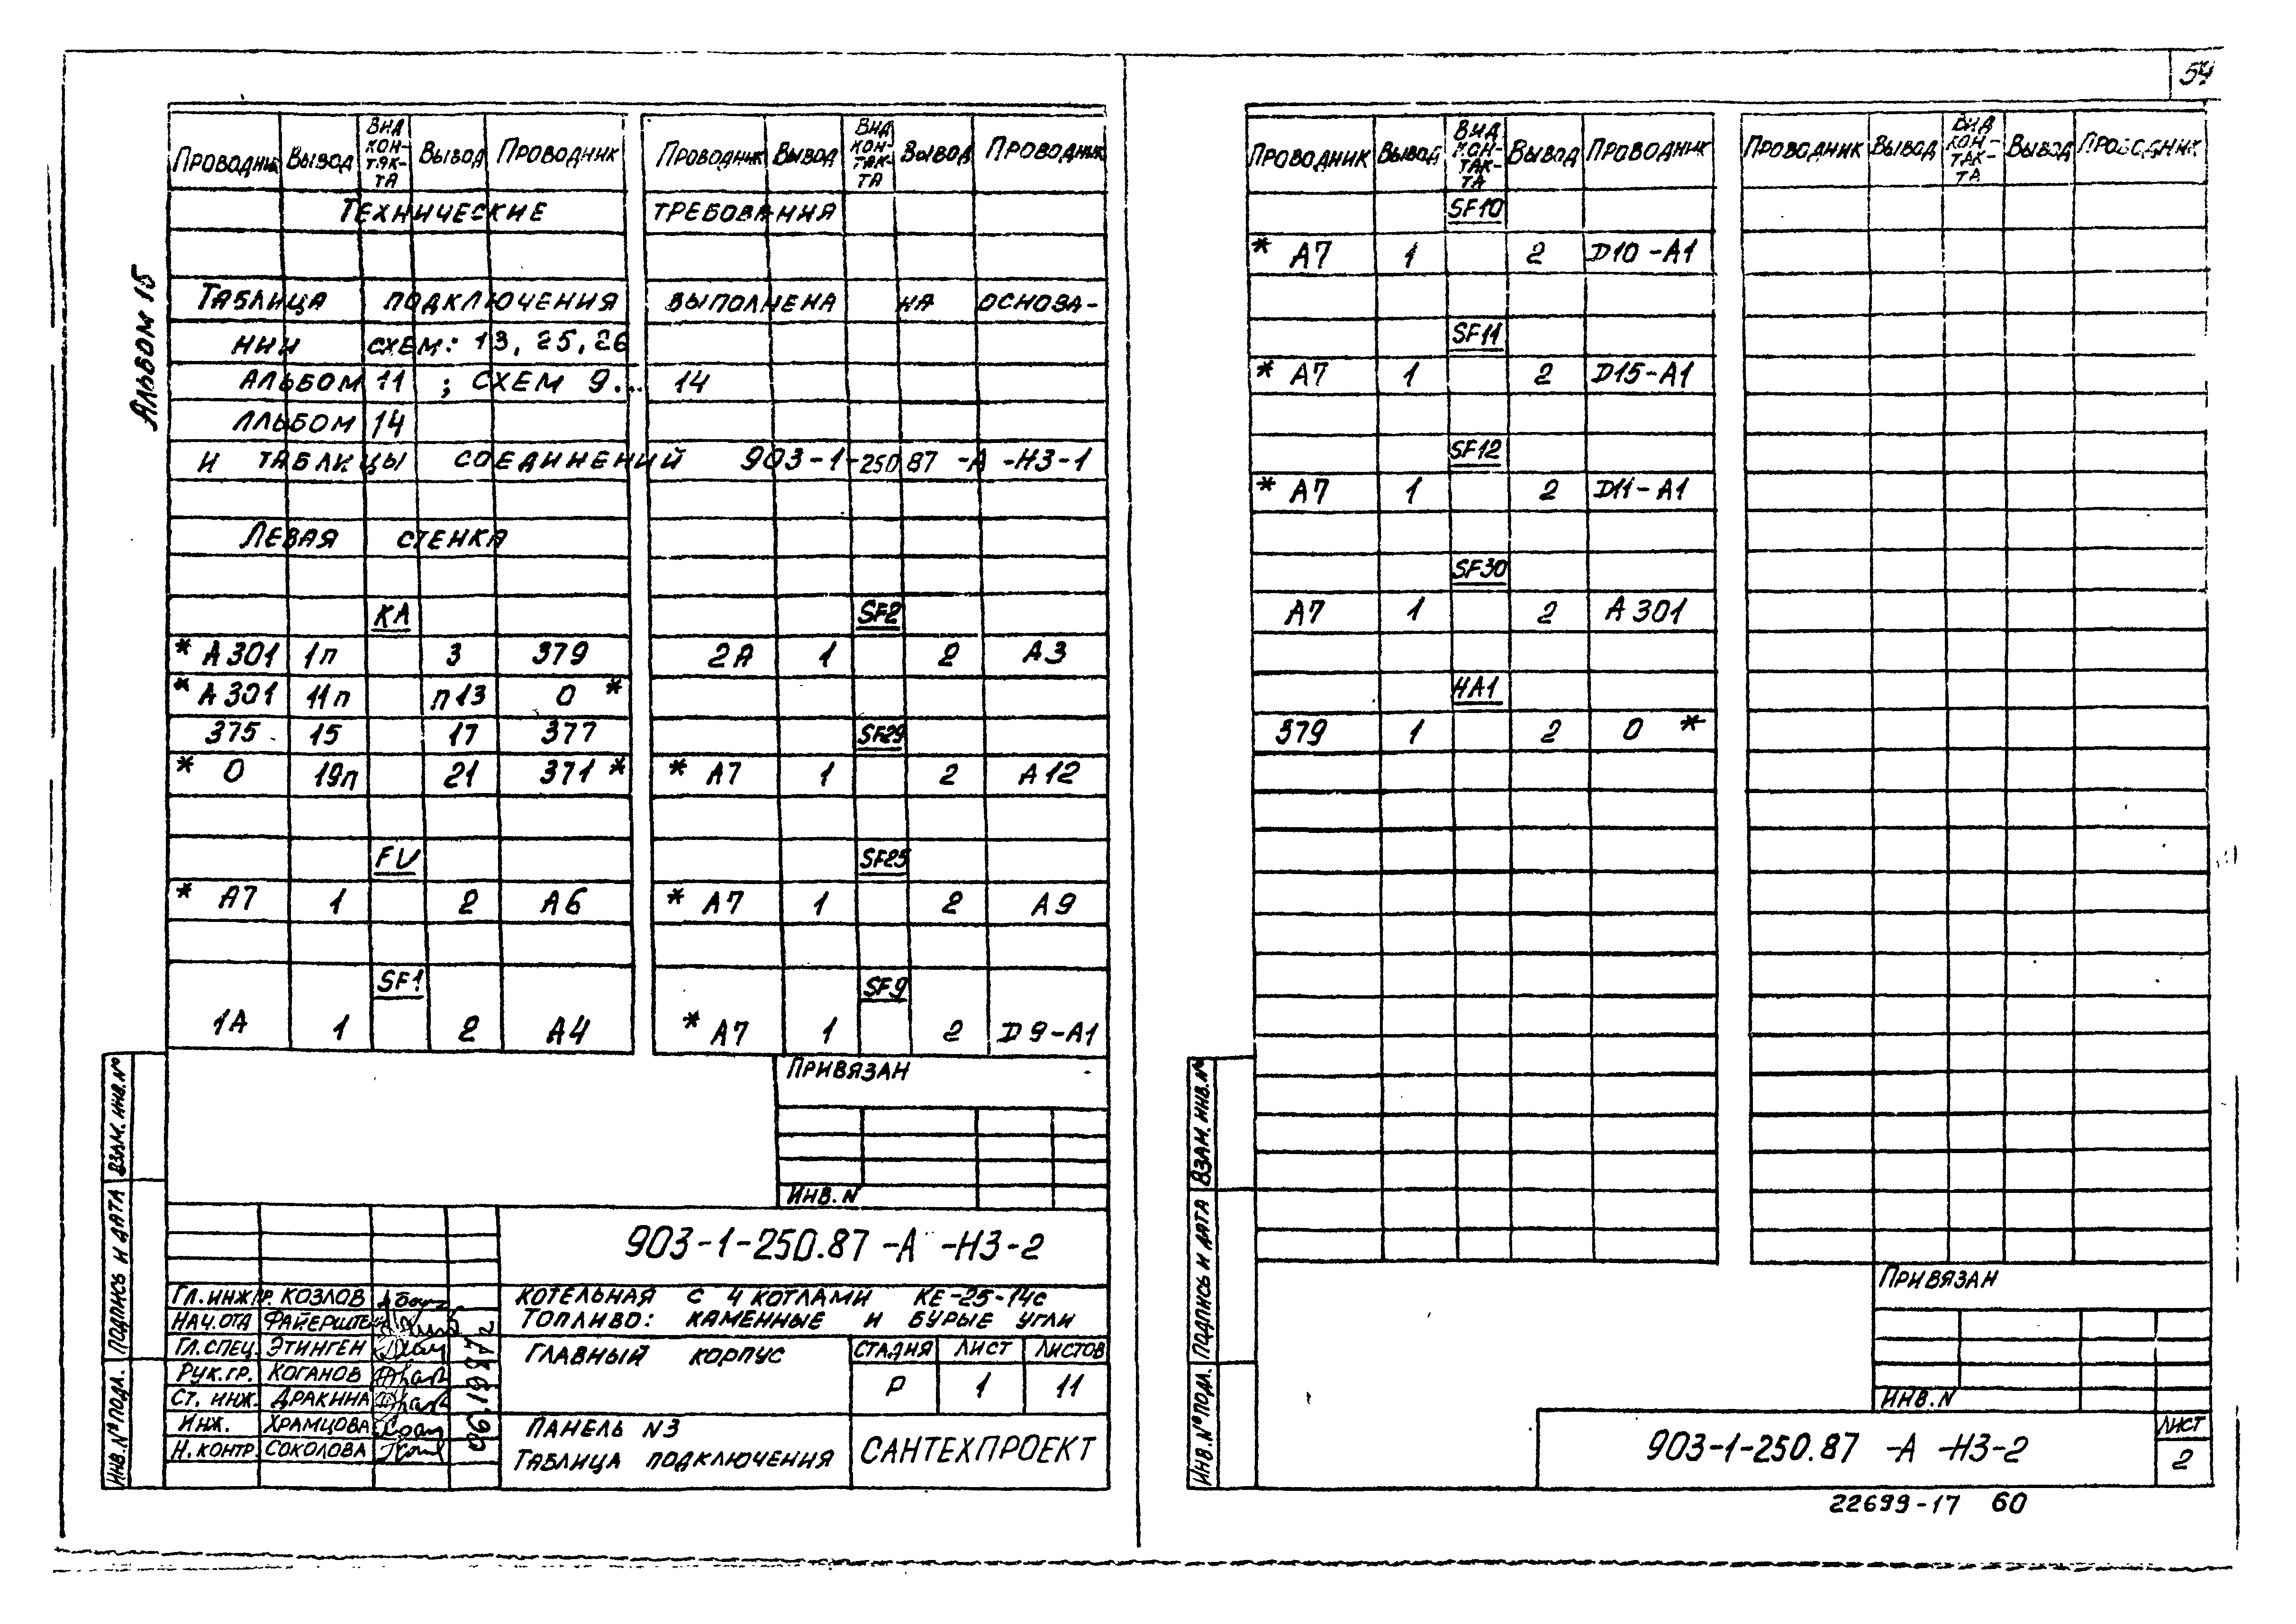 54
Альбом 15
Проводник Вывод Вид контакта Вывод Проводник Проводник Вывод Вид контакта Вывод Проводник
Технические требования
Таблица подключения выполнена на основа-
нии схем: 13, 25, 26
альбом 11 ; схем 9... 14
альбом 14
и таблицы соединений 903-1-250.87 -А -НЗ-1
Левая стенка
КА
* А301 1п 3 379
* А301 11п п13 0 *
375 15 17 377
* 0 19п 21 371 *
FV
* А7 1 2 А6
SF1
1А 1 2 А4
SF2
2А 1 2 А3
SF29
* А7 1 2 А12
SF25
* А7 1 2 А9
SF9
* А7 1 2 D9-А1
Привязан
Инв. N
903-1-250.87 -А -НЗ-2
Котельная с 4 котлами КЕ-25-14с
Топливо: каменные и бурые угли
Главный корпус
Стадия Лист Листов
Р 1 11
Панель N3
Таблица подключения
САНТЕХПРОЕКТ
Гл. инж. пр. Козлов
Нач. отд Файерштейн
Гл. спец. Этинген
Рук. гр. Коганов
Ст. инж. Дракина
Инж. Храмцова
Н. контр. Соколова
Инв. № подл. Подпись и дата Взам. инв. №
Проводник Вывод Вид контакта Вывод Проводник Проводник Вывод Вид контакта Вывод Проводник
SF10
* А7 1 2 D10-А1
SF11
* А7 1 2 D15-А1
SF12
* А7 1 2 D11-А1
SF30
А7 1 2 А301
НА1
379 1 2 0 *
Привязан
Инв. N
903-1-250.87 -А -НЗ-2
Лист
2
Инв. № подл. Подпись и дата Взам. инв. №
22699-17 60